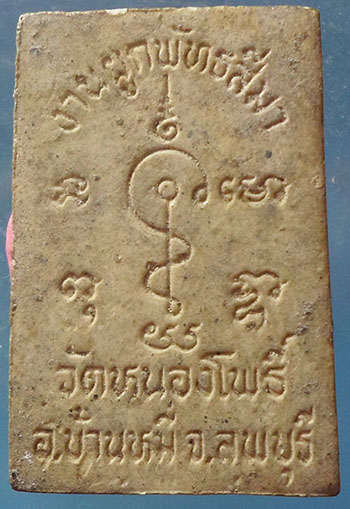 งานผูกพัทธสีมา
วัดหนองโพธิ์
อ.บ้านหมี่ จ.ลพบุรี